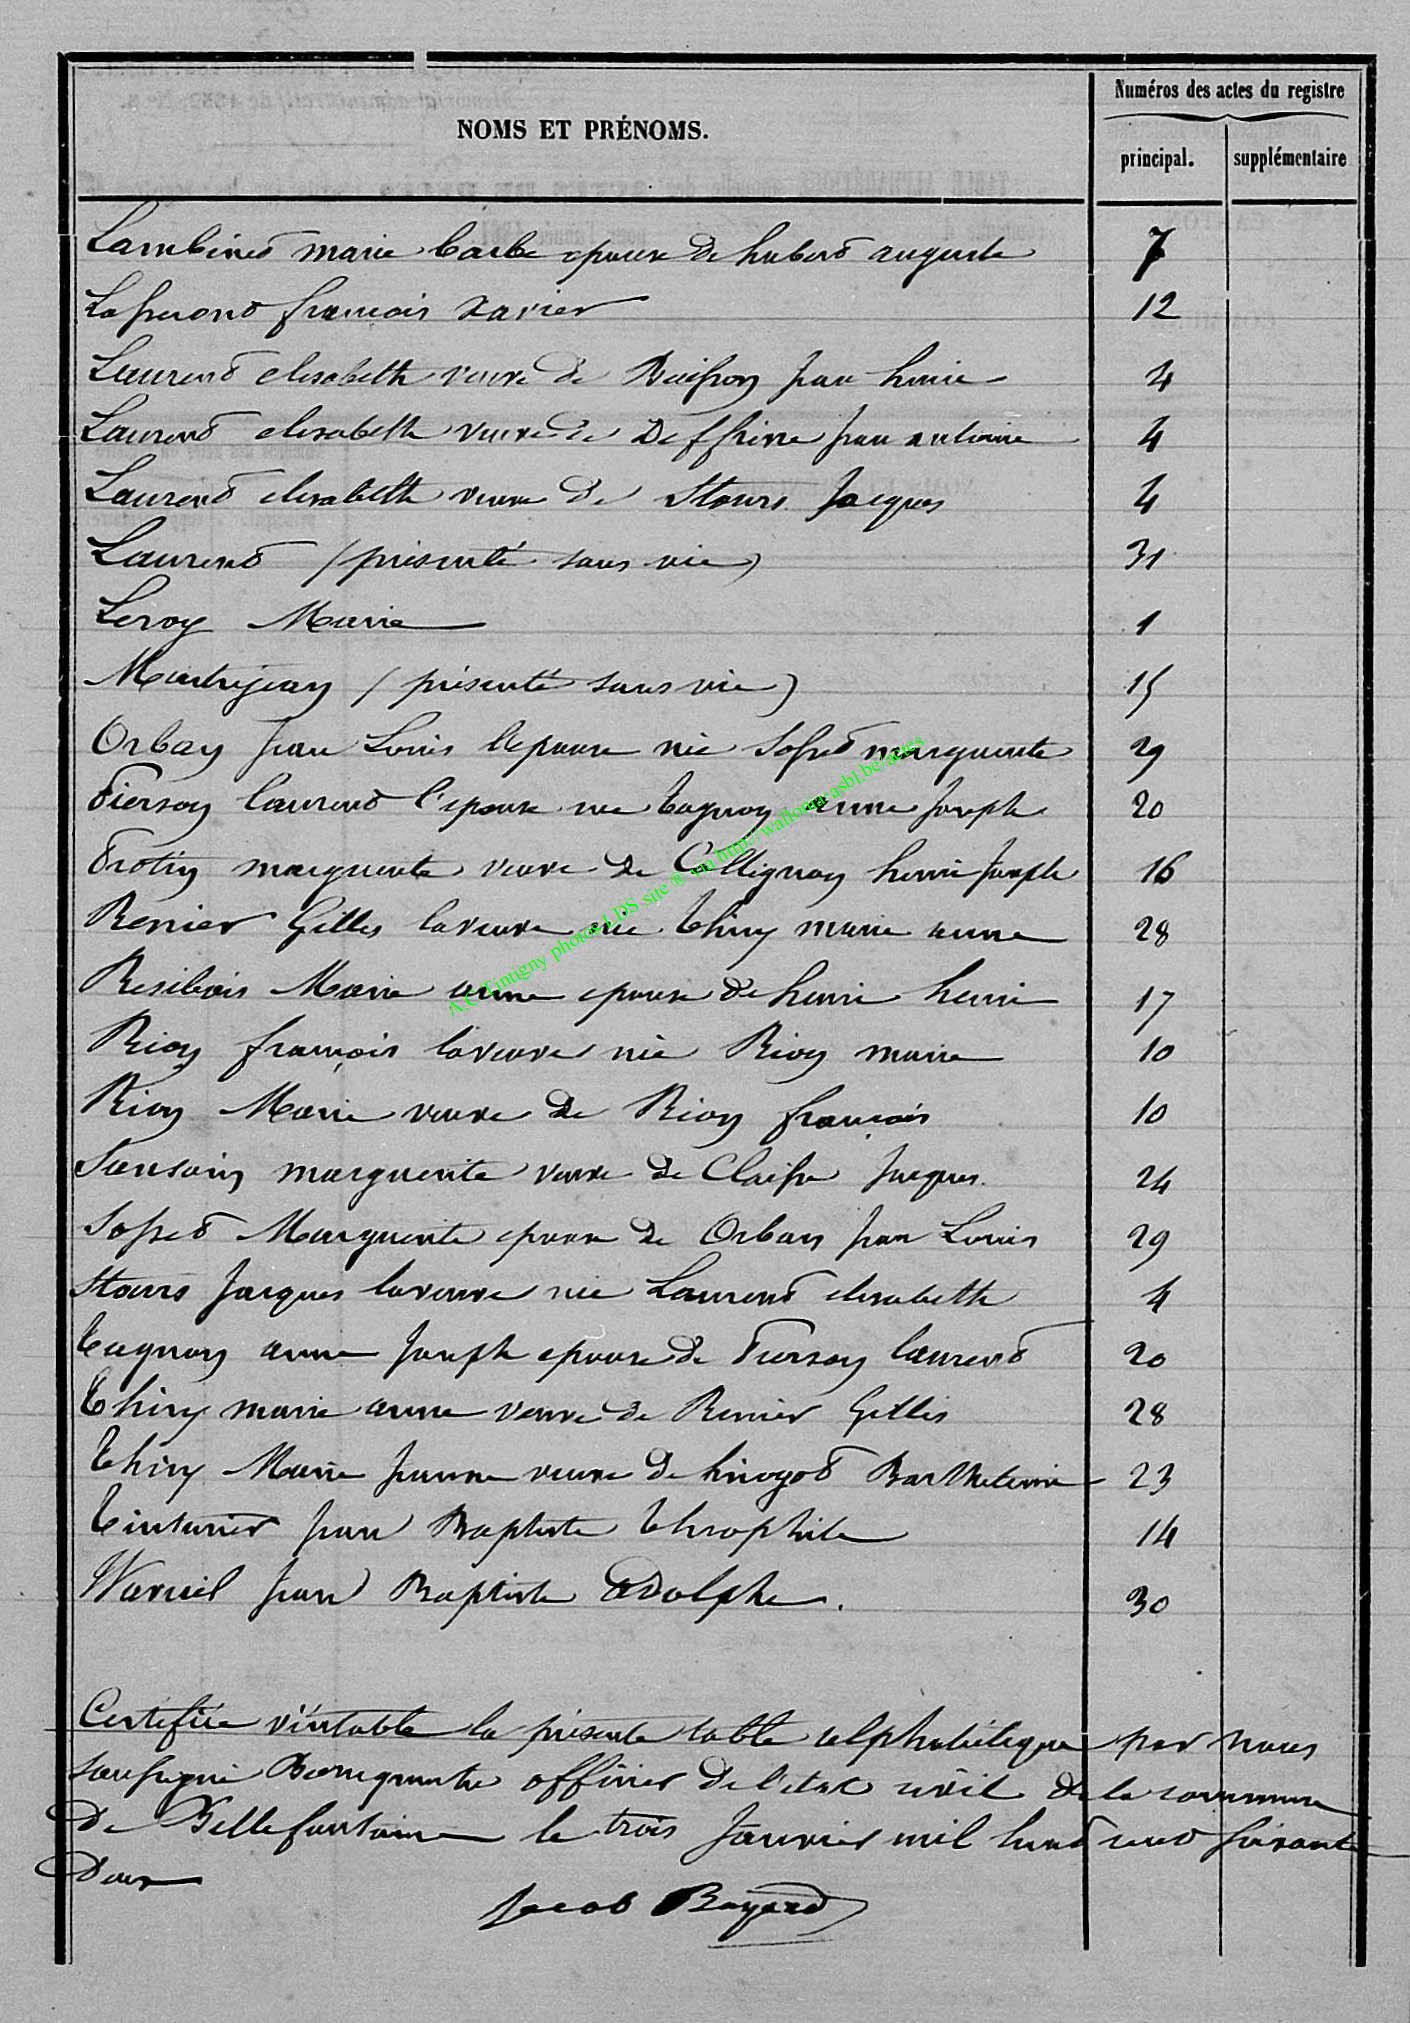 Numéros des actes du registre
NOMS ET PRÉNOMS.
principal. supplémentaire
Lambinet marie barbe epouse de hubert auguste 7
françois xavier 12
Laurent elisabeth veuve de jean henri 4
Laurent elisabeth veuve de Deffrire jean antoine 4
Laurent elisabeth veuve de Stours Jacques 4
Laurent (présenté sans vie) 31
Leroy Marie 1
Martrejean (présenté sans vie) 15
Orban jean Louis l'epouse née Sosset marguerite 29
Pierson laurent l'epouse née tagnon anne joseph 20
Protin marguerite veuve de Collignon henri joseph 16
Renier Gilles la veuve née thiry marie anne 28
Resibois Marie anne epouse de henri henri 17
Rion françois la veuve née Rion marie 10
Rion Marie veuve de Rion françois 10
Sansoin marguerite veuve de Claisse jacques 24
Sosset Marguerite epouse de Orban jean Louis 29
Stours Jacques la veuve née Laurent elisabeth 4
tagnon anne joseph epouse de Pierson laurent 20
thiry marie anne veuve de Renier Gilles 28
thiry Marie jeanne veuve de hingot Barthelemi 23
tinturier jean Baptiste theophile 14
Warnil jean Baptiste adolphe. 30
Certifiée véritable la présente table alphabétique par nous
soussigné Bourgmestre officier de l'etat civil de la commune
de Bellefontaine le trois Janvier mil huit cent soixante
deux
Jacob Bayard
A.C. Tintigny photos LDS site ® via http://wallonia-asbl.be/actes